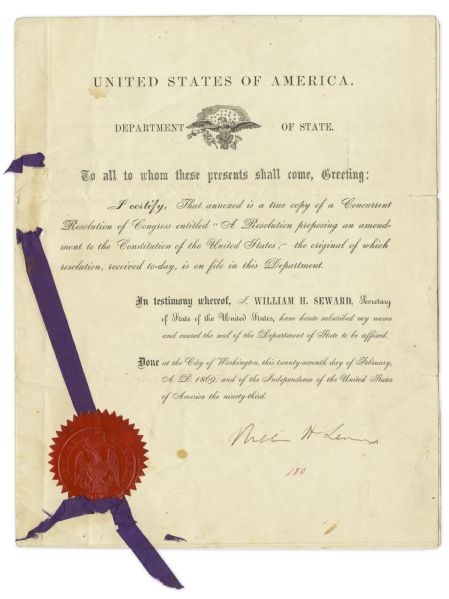 UNITED STATES OF AMERICA.
DEPARTMENT OF STATE.
To all to whom these presents shall come, Greeting:
I certify, That annexed is a true copy of a Concurrent
Resolution of Congress entitled "A Resolution proposing an amend-
ment to the Constitution of the United States;" the original of which
resolution, received to-day, is on file in this Department.
In testimony whereof, I, WILLIAM H. SEWARD, Secretary
of State of the United States, have hereto subscribed my name
and caused the seal of the Department of State to be affixed.
Done at the City of Washington, this twenty-seventh day of February,
A. D. 1869, and of the Independence of the United States
of America the ninety-third.
William H Seward
180